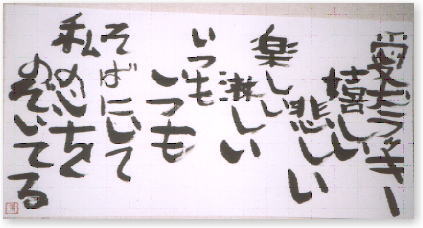 愛犬ラッキー
嬉しい
悲しい
楽しい
淋しい
いつも
いつも
そばにいて
私の心を
のぞいてる